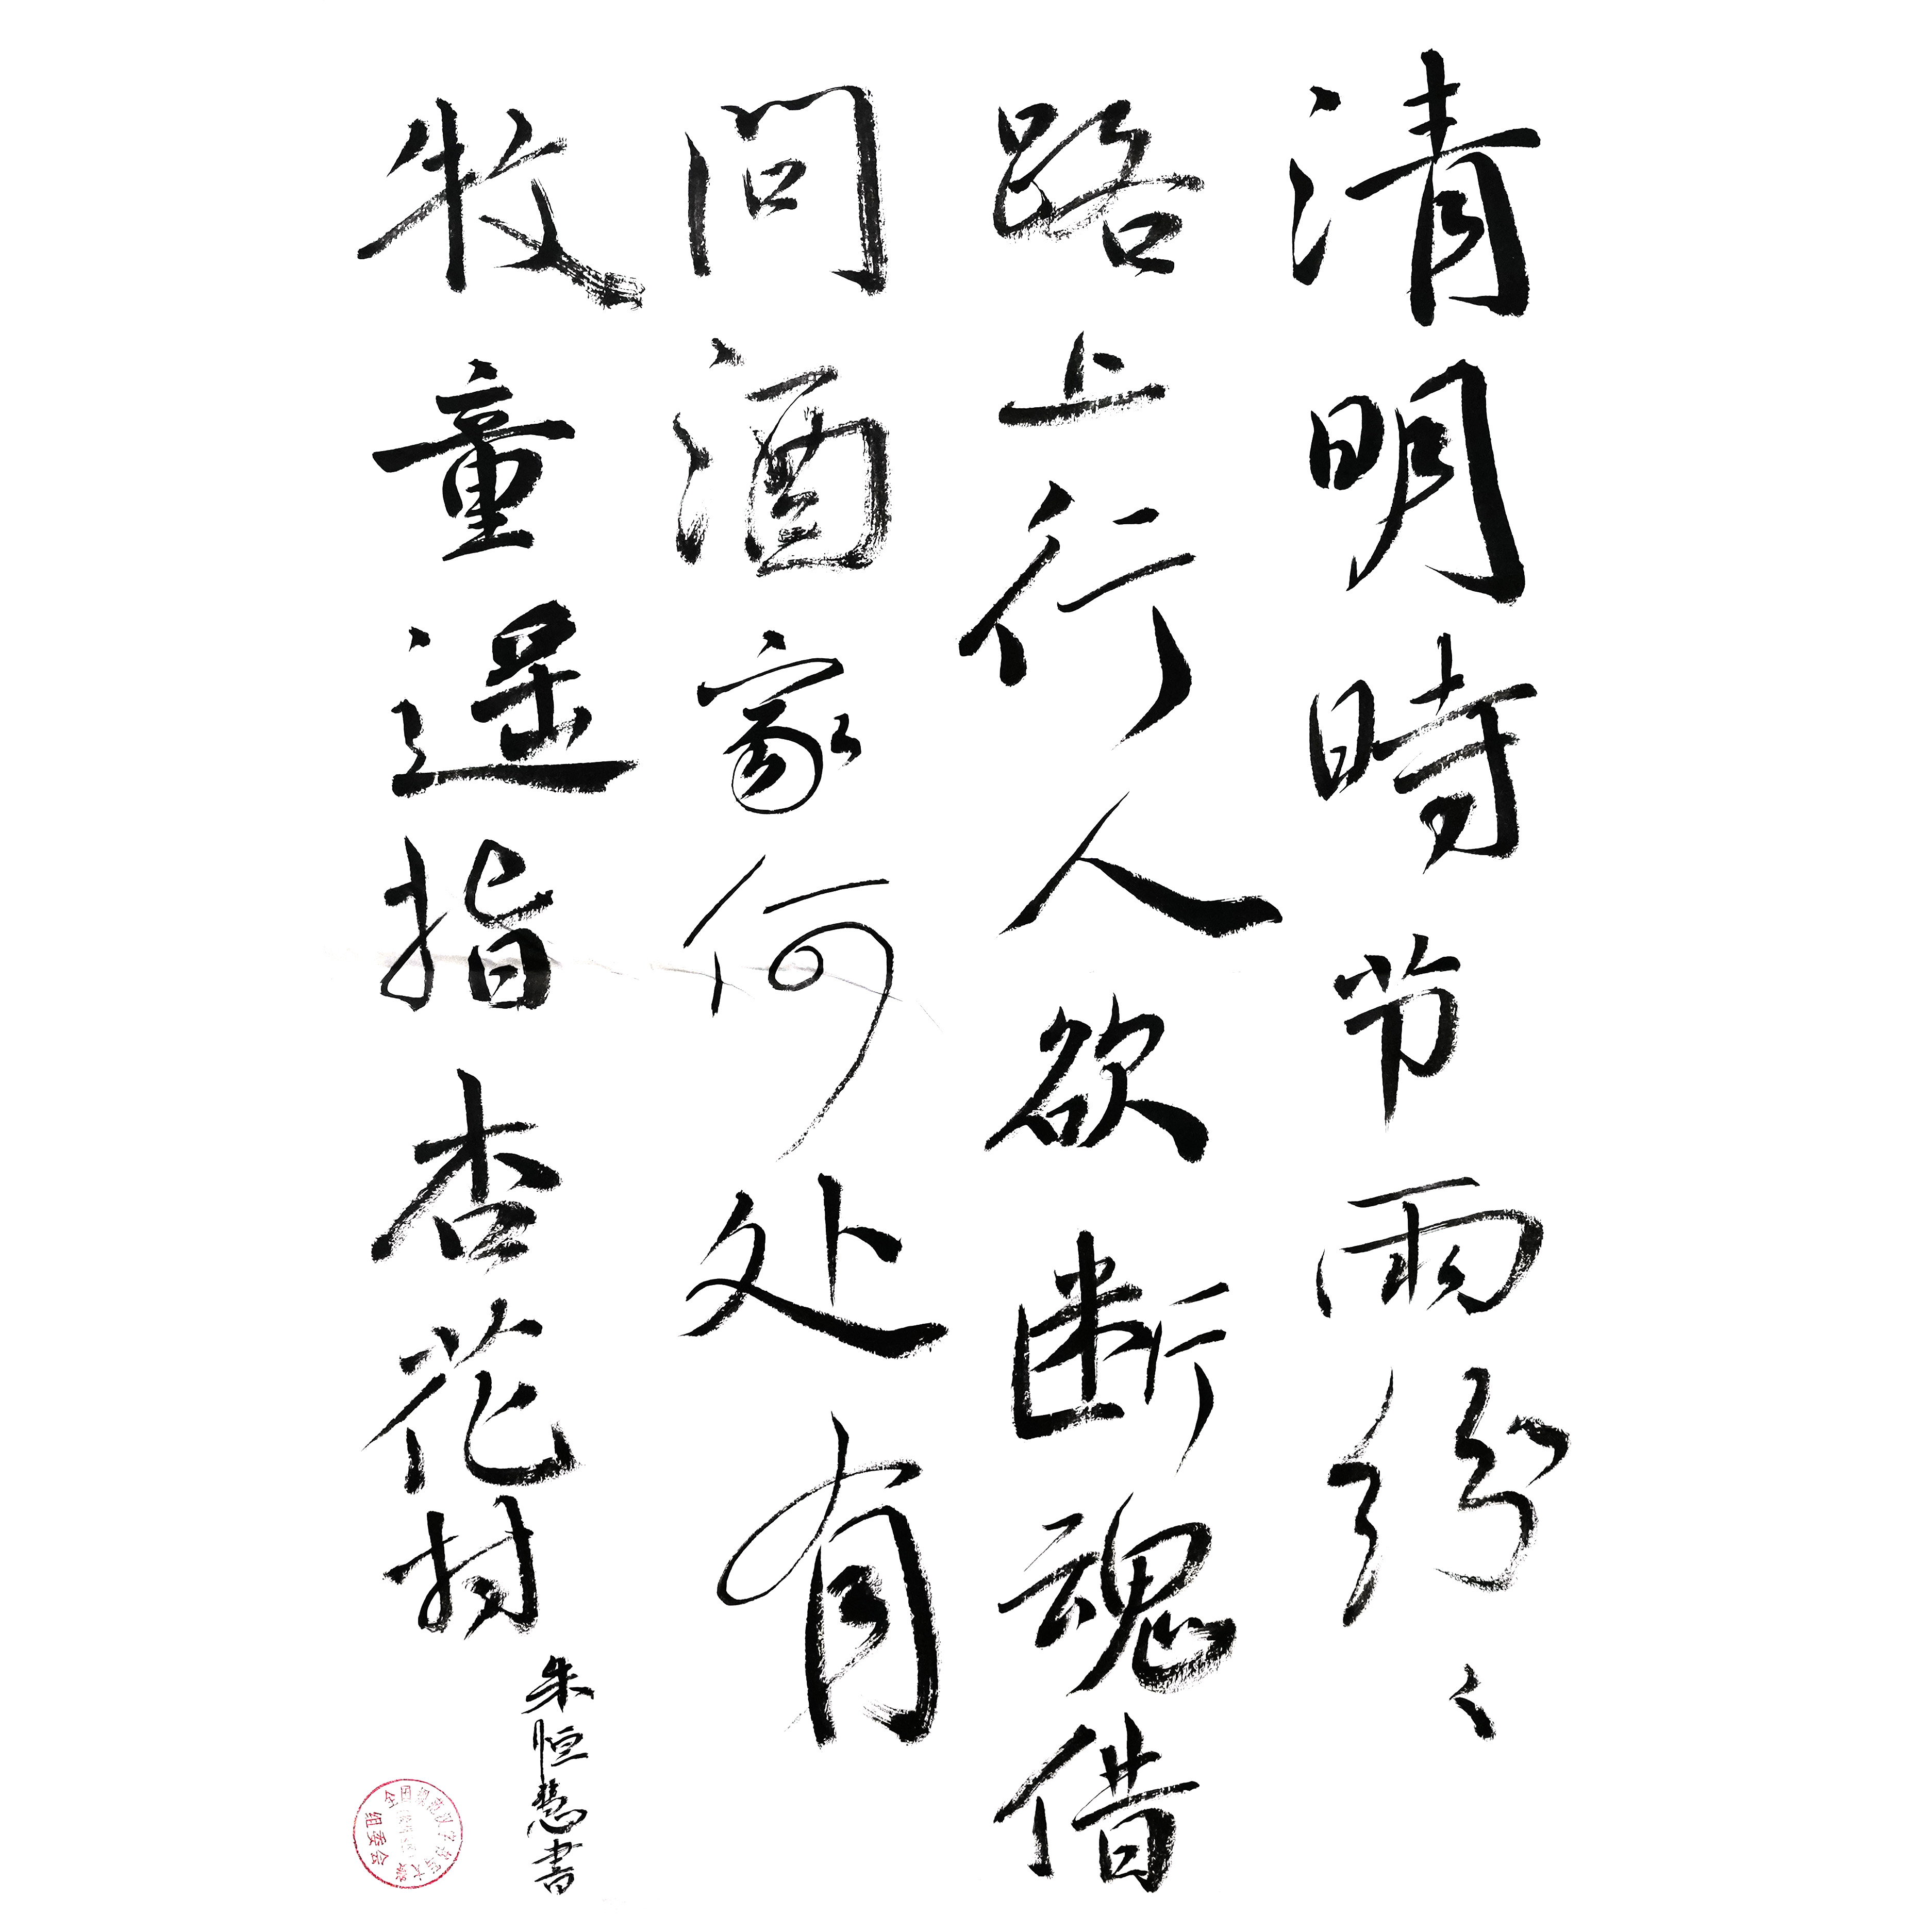 清明時节雨纷〻
路上行人欲断魂借
问酒家何处有
牧童遥指杏花村
朱恒慧書
组委会